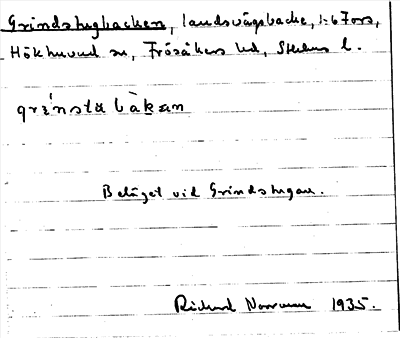 Grindstugbacken, landsvägsbacke, 1:67 ors,
Hökhuvud sn, Frösåkers hd, Sthlms l.
grɛ̀nsta bàkan
Beläget vid Grindstugan.
Richard Norrman 1935.